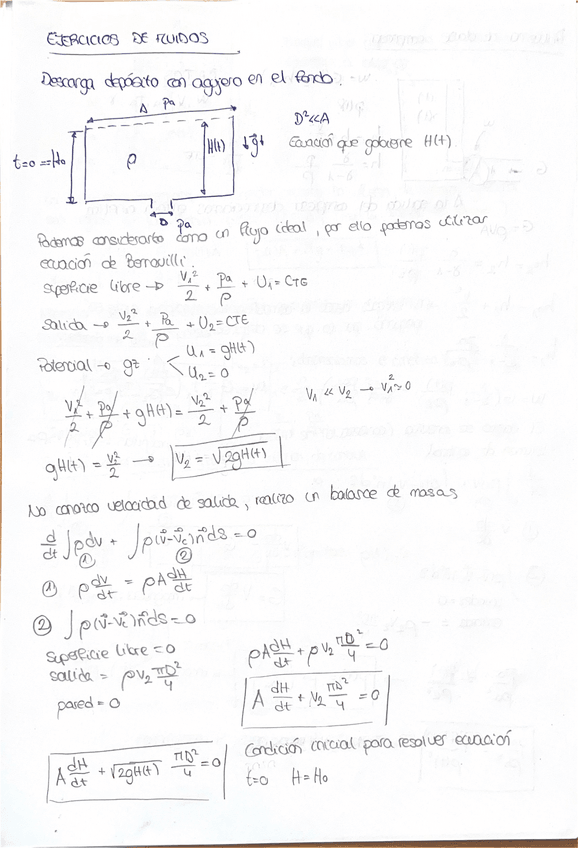 EJERCICIOS DE FLUIDOS
Descarga depósito con agujero en el fondo.
A Pa
D²<<A
Ecuación que gobierne H(t).
t=0 → H₀
ρ
H(t)
↓g⃗↓
D Pa
Podemos considerarlo como un flujo ideal, por ello podemos utilizar
ecuación de Bernouilli.
Superficie libre → V₁²/2 + Pa/ρ + U₁ = CTE
Salida → V₂²/2 + Pa/ρ + U₂ = CTE
Potencial → gz < U₁ = gH(t)
U₂ = 0
V₁²/2 + Pa/ρ + gH(t) = V₂²/2 + Pa/ρ
V₁ << V₂ → V₁² ≈ 0
gH(t) = V₂²/2 → V₂ = √2gH(t)
No conozco velocidad de salida, realizo un balance de masas
d/dt ∫ρdv + ∫ρ(v⃗-v⃗c)n⃗ds = 0
① ②
① ρ dv/dt = ρA dH/dt
② ∫ρ(v⃗-v⃗c)n⃗ds = 0
Superficie libre = 0
salida = ρV₂ πD²/4
pared = 0
ρA dH/dt + ρV₂ πD²/4 = 0
A dH/dt + V₂ πD²/4 = 0
A dH/dt + √2gH(t) πD²/4 = 0
Condición inicial para resolver ecuación
t=0 H=H₀